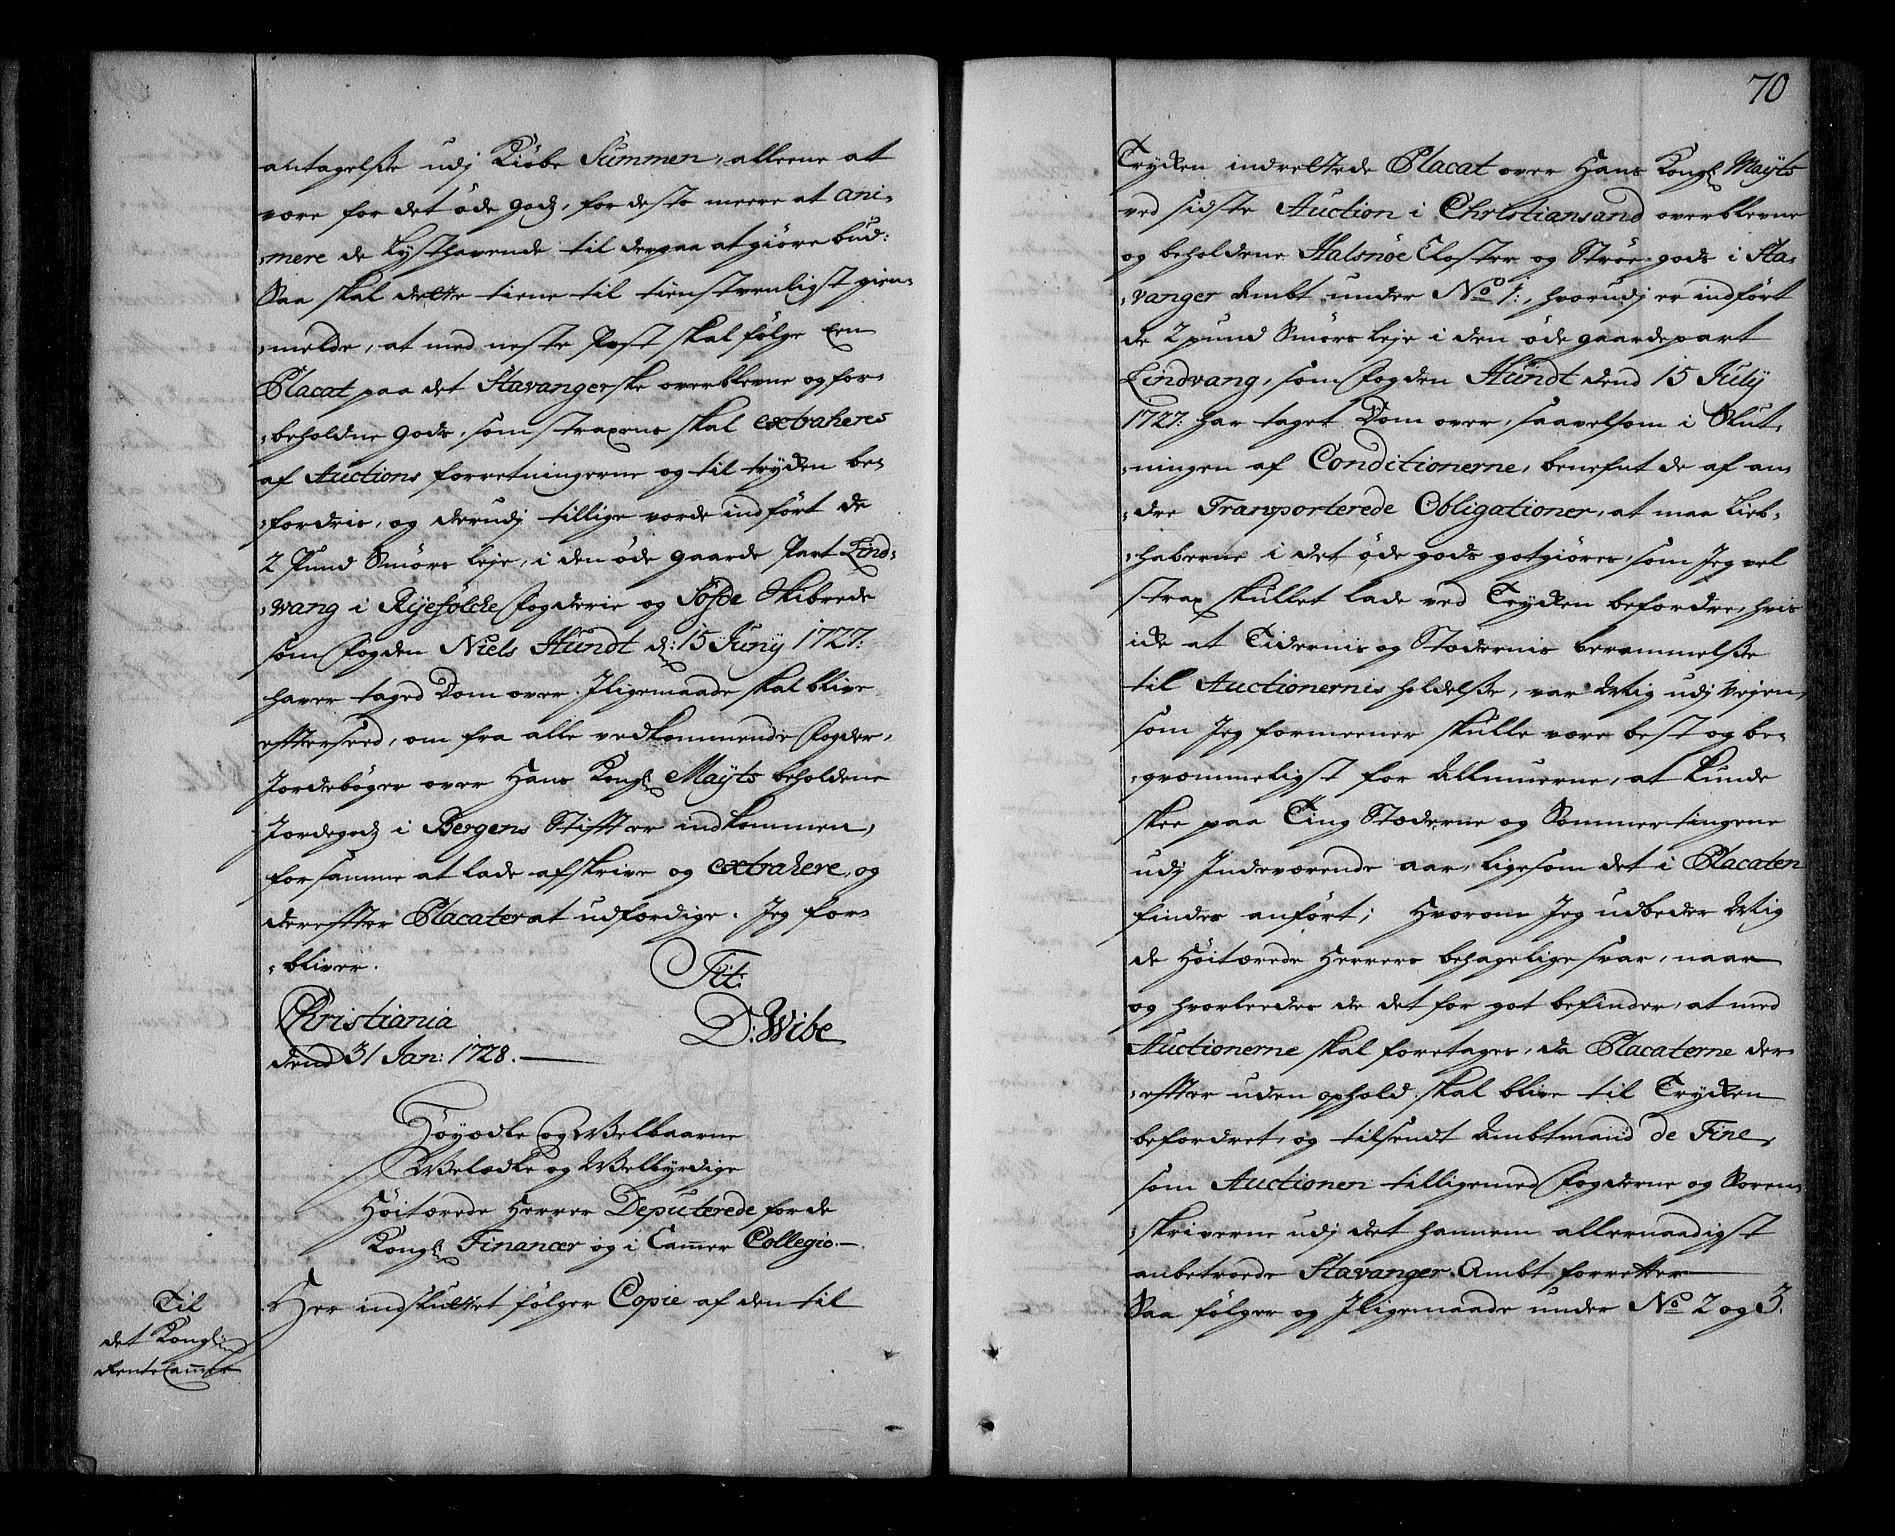 antagelsse udj Kiøbe Summen, alleene at
være for det øde gods, for desto meere at ani-
-mere de Lysthavende til derpaa at giøre bud:
Saa skal dette tiene til tienstvenligst gien-
-melde, at med neste Post skal følge een
Placat paa det Stavangerske overblevne og for-
-beholdne gods, som straxens skal extraheres
af Auctions forretningerne og til trykken be-
-fordris, og derudj tillige vorde indført de
2 Pund Smørs leje, i den øde gaarde Part Lind-
-vang i Ryefølcke Fogderie og Jøsde Skibrede
som Fogden Niels Hundt d: 15 Juny 1727:
haver taged Dom over. Iligemaade skal blive
effterseed, om fra alle vedkommende Fogder,
Jordebøger over Hans Kongl: Mayts beholdene
Jordegods i Bergens Stifft er indkommen,
for samme at lade afskrive og extrahere, og
derefter Placater at udferdige. Jeg for-
-bliver.
Tit:
Christiania
dend 31 Jan: 1728.
D: Wibe
Høyædle og Welbaarne
Welædle og Welbyrdige
Høitærede Herrer Deputerede for de
Kongl: Financer og i Cammer Collegio.
Til
det Kongl:
Rente Cammer
Her indsluttet følger Copie af den til
70
Trykken indrettede Placat over Hans Kongl: Mayts
ved sidste Auction i Christiansand overblevne
og beholdene Halsnøe Closter og Strøe-gods i Sta-
-vanger Ambt under No 1:, hvorudj er indført
de 2 pund Smørs leje i den øde gaardepart
Lindvang, som Fogden Hundt dend 15 July
1727: har taget Dom over, saavelsom i Slut-
-ningen af Conditionerne, benefnt de af an-
-dre Transporterede Obligationer, at maa Lieb-
-haberne i det øde gods gotgiøres, som Jeg vel
strax skullet lade ved Trykken befordre, hvis
ikke at Tidernis og Stædernis berammelsse
til Auctionernis holdelsse, var Mig udj Vejen,
som Jeg formeener skulle være best og be-
-qvemmeligst for Allmuerne, at kunde
skee paa Ting Stæderne og Sommertingene
udj Indeværende aar, ligesom det i Placaten
findes anført; Hvorom Jeg udbeder Mig
de Høitærede Herrers behagelige svar, naar
og hvorleedes de det for got befinder, at med
Auctionerne skal foretages, da Placaterne der-
-effter uden ophold skal blive til Trykken
befordret, og tilsendt Ambtmand de Fine,
som Auctionen tilligemed Fogderne og Soren-
-skriverne udj det hannem allernaadigst
anbetroede Stavanger Ambt forretter
Saa følger og Iligemaade under No 2 og 3.